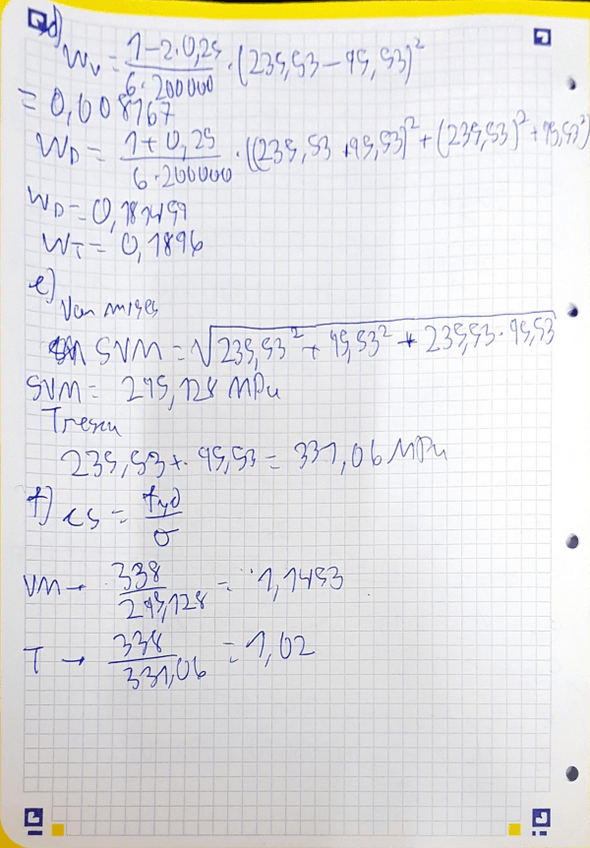 d) Wv = 1-2·0,25 / 6·200000 · (235,53 - 95,53)²
= 0,008167
WD = 1+0,25 / 6·200000 · ((235,53 + 95,53)² + (235,53)² + 95,53²)
WD = 0,181459
WT = 0,1896
e)
Von mises
SVM = √235,53² + 95,53² + 235,53·95,53
SVM = 295,128 MPa
Tresca
235,53 + 95,53 = 331,06 MPa
f) cs = fyd / σ
VM → 338 / 295,128 = 1,1453
T → 338 / 331,06 = 1,02